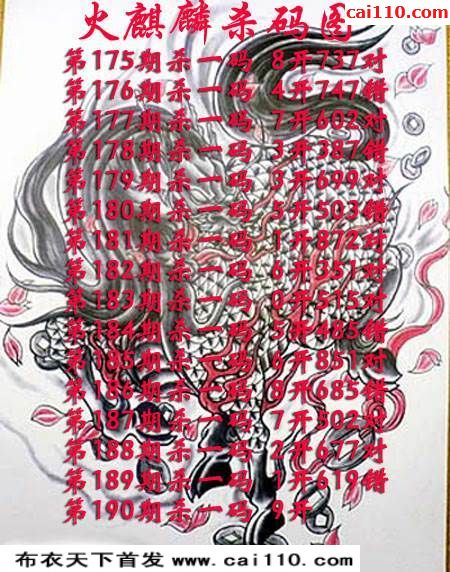 cai110.com
火麒麟杀码图
第175期杀一码 8开737对
第176期杀一码 4开747错
第177期杀一码 7开602对
第178期杀一码 3开387错
第179期杀一码 3开699对
第180期杀一码 5开503错
第181期杀一码 1开872对
第182期杀一码 6开351对
第183期杀一码 0开515对
第184期杀一码 5开485错
第185期杀一码 6开851对
第186期杀一码 8开685错
第187期杀一码 7开502对
第188期杀一码 2开677对
第189期杀一码 1开619错
第190期杀一码 9开
布衣天下首发 www.cai110.com